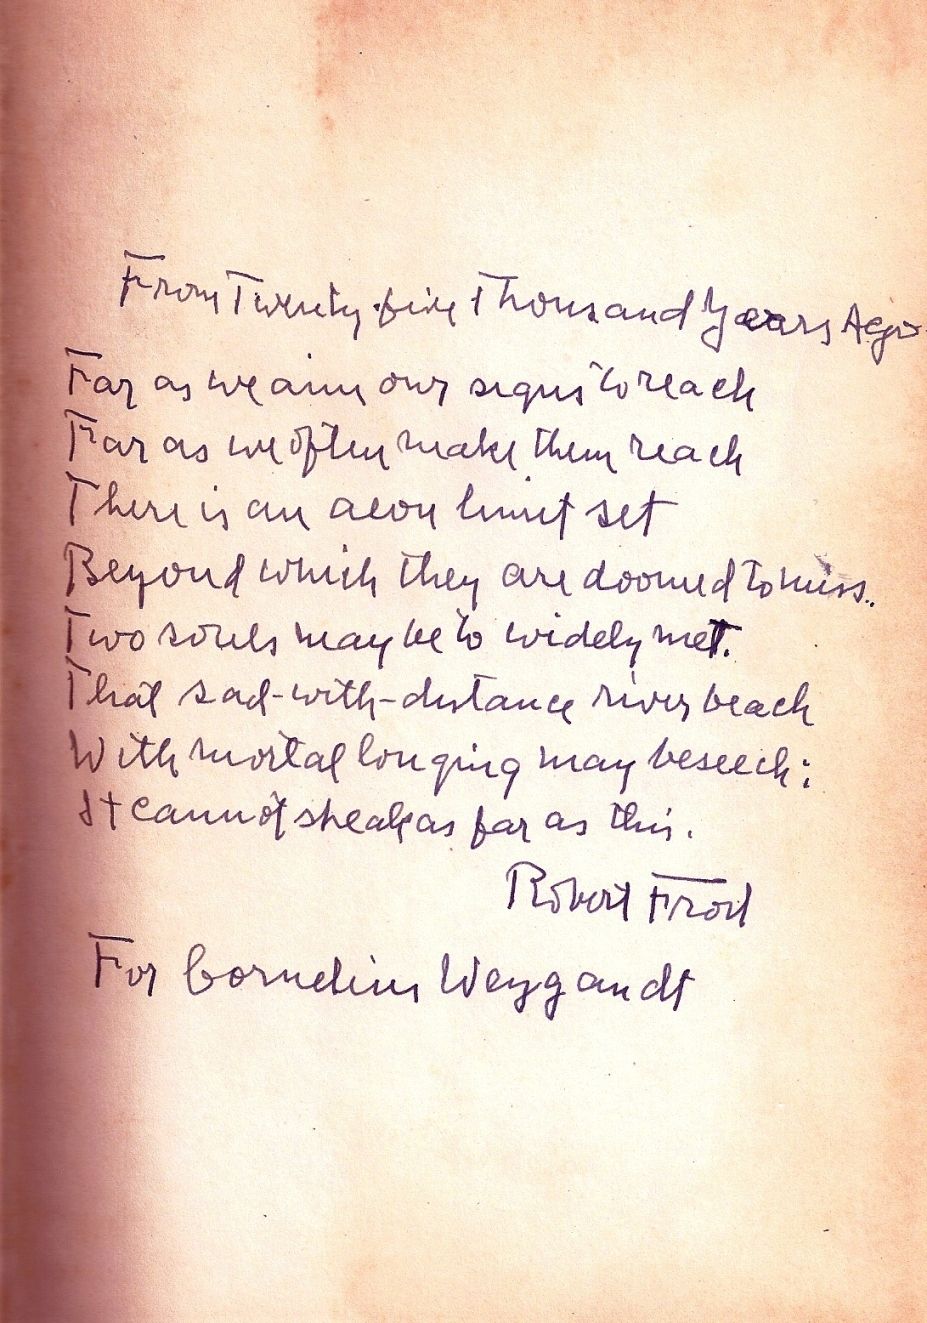 From Twenty-five Thousand Years Ago
Far as we aim our signs to reach
Far as we often make them reach
There is an aeon limit set
Beyond which they are doomed to miss..
Two souls may be to widely met.
That sad-with-distance river beach
With mortal longing may beseech;
It cannot speak as far as this.
Robert Frost
For Cornelius Weygandt